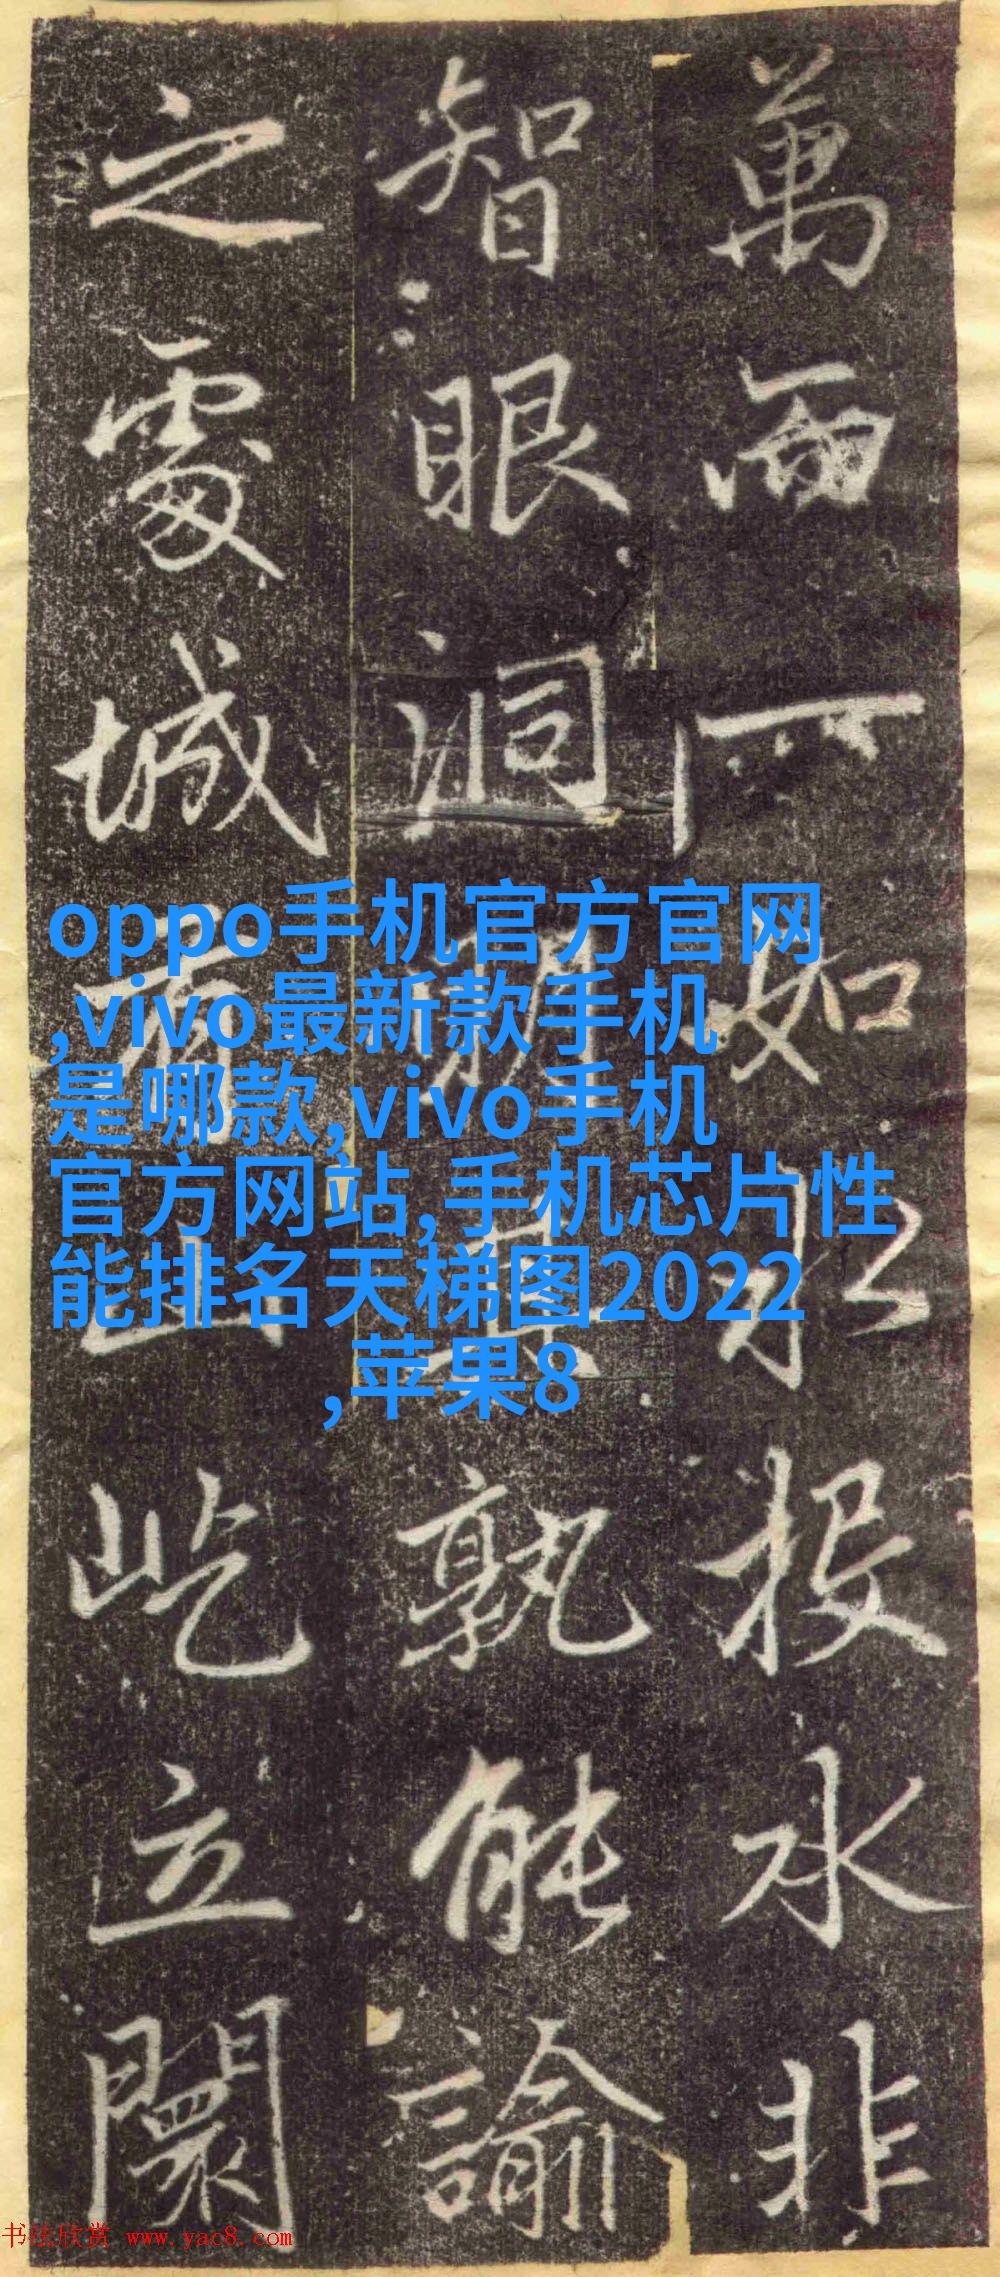 萬而一如水投水非
智眼洞朗其孰能諭
之處城有山屹立闤
oppo手机官方官网
,vivo最新款手机
是哪款,vivo手机
官方网站,手机芯片性
能排名天梯图2022
,苹果8
书法欣赏 www.yac8.com